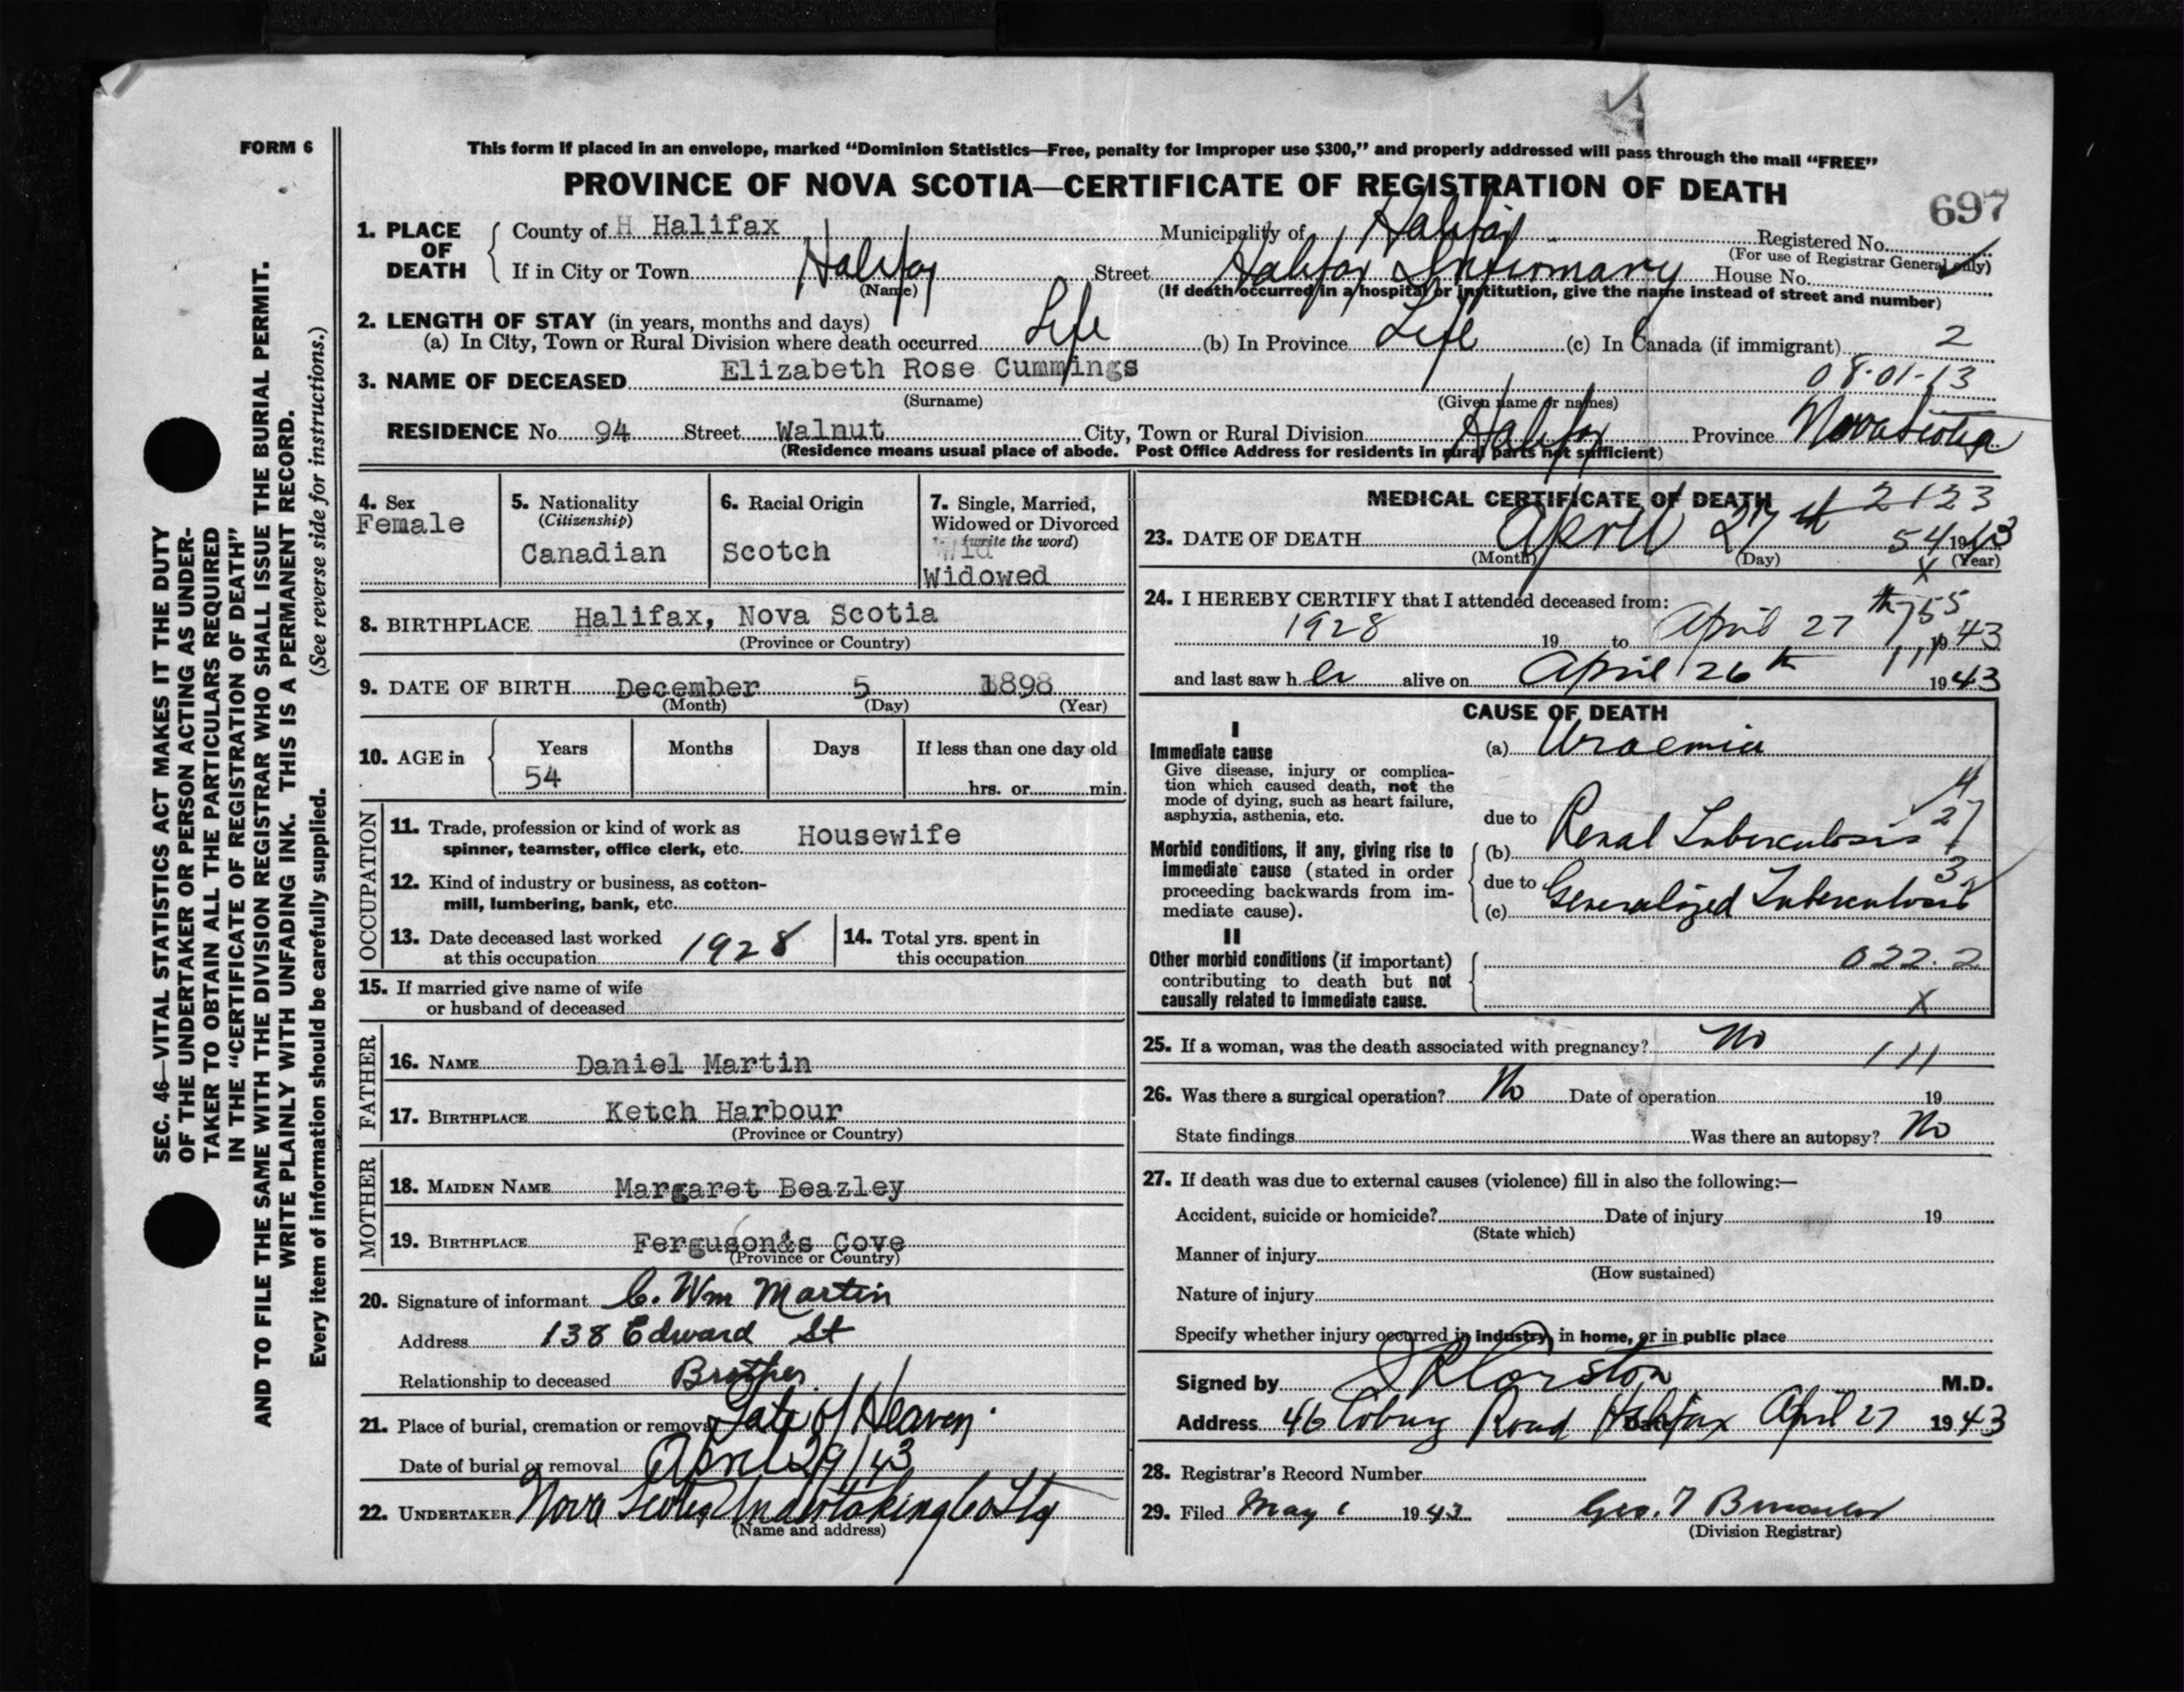 FORM 6
This form if placed in an envelope, marked “Dominion Statistics—Free, penalty for improper use $300,” and properly addressed will pass through the mail “FREE”
PROVINCE OF NOVA SCOTIA—CERTIFICATE OF REGISTRATION OF DEATH
697
1. PLACE OF DEATH
County of H Halifax Municipality of Halifax Registered No.
(For use of Registrar General only)
If in City or Town Halifax Street Halifax Infirmary House No.
(Name) (If death occurred in a hospital or institution, give the name instead of street and number)
2. LENGTH OF STAY (in years, months and days)
(a) In City, Town or Rural Division where death occurred Life (b) In Province Life (c) In Canada (if immigrant) 2
3. NAME OF DECEASED Elizabeth Rose Cummings 08-01-13
(Surname) (Given name or names)
RESIDENCE No. 94 Street Walnut City, Town or Rural Division Halifax Province Nova Scotia
(Residence means usual place of abode. Post Office Address for residents in rural parts not sufficient)
4. Sex
Female
5. Nationality
(Citizenship)
Canadian
6. Racial Origin
Scotch
7. Single, Married,
Widowed or Divorced
(write the word)
Wid
Widowed
8. BIRTHPLACE Halifax, Nova Scotia
(Province or Country)
9. DATE OF BIRTH December 5 1898
(Month) (Day) (Year)
10. AGE in
Years Months Days If less than one day old
54 hrs. or min.
OCCUPATION
11. Trade, profession or kind of work as
spinner, teamster, office clerk, etc. Housewife
12. Kind of industry or business, as cotton-
mill, lumbering, bank, etc.
13. Date deceased last worked
at this occupation 1928
14. Total yrs. spent in
this occupation
15. If married give name of wife
or husband of deceased
FATHER
16. NAME Daniel Martin
17. BIRTHPLACE Ketch Harbour
(Province or Country)
MOTHER
18. MAIDEN NAME Margaret Beazley
19. BIRTHPLACE Ferguson&s Cove
(Province or Country)
20. Signature of informant C. Wm Martin
Address 138 Edward St
Relationship to deceased Brother
21. Place of burial, cremation or removal Gate of Heaven
Date of burial or removal April 29/43
22. UNDERTAKER Nova Scotia Undertaking Co Ltd
(Name and address)
MEDICAL CERTIFICATE OF DEATH 2123
23. DATE OF DEATH April 27 54 1943
(Month) (Day) (Year)
X
24. I HEREBY CERTIFY that I attended deceased from:
755
1928 19 to April 27th 1943
111
and last saw h er alive on April 26th 1943
CAUSE OF DEATH
I
Immediate cause
Give disease, injury or complica-
tion which caused death, not the
mode of dying, such as heart failure,
asphyxia, asthenia, etc.
(a) Uraemia
due to
Morbid conditions, if any, giving rise to
immediate cause (stated in order
proceeding backwards from im-
mediate cause).
(b) Renal Tuberculosis
due to
(c) Generalized Tuberculosis
II
Other morbid conditions (if important)
contributing to death but not
causally related to immediate cause.
022.2
X
25. If a woman, was the death associated with pregnancy? No
111
26. Was there a surgical operation? No Date of operation 19
State findings Was there an autopsy? No
27. If death was due to external causes (violence) fill in also the following:—
Accident, suicide or homicide? Date of injury 19
(State which)
Manner of injury
(How sustained)
Nature of injury
Specify whether injury occurred in industry, in home, or in public place
Signed by M.D.
Address 46 Coburg Road Halifax April 27 1943
28. Registrar's Record Number
29. Filed May 1943 Geo. T
(Division Registrar)
SEC. 46—VITAL STATISTICS ACT MAKES IT THE DUTY
OF THE UNDERTAKER OR PERSON ACTING AS UNDER-
TAKER TO OBTAIN ALL THE PARTICULARS REQUIRED
IN THE “CERTIFICATE OF REGISTRATION OF DEATH”
AND TO FILE THE SAME WITH THE DIVISION REGISTRAR WHO SHALL ISSUE THE BURIAL PERMIT.
WRITE PLAINLY WITH UNFADING INK. THIS IS A PERMANENT RECORD.
Every item of information should be carefully supplied. (See reverse side for instructions.)